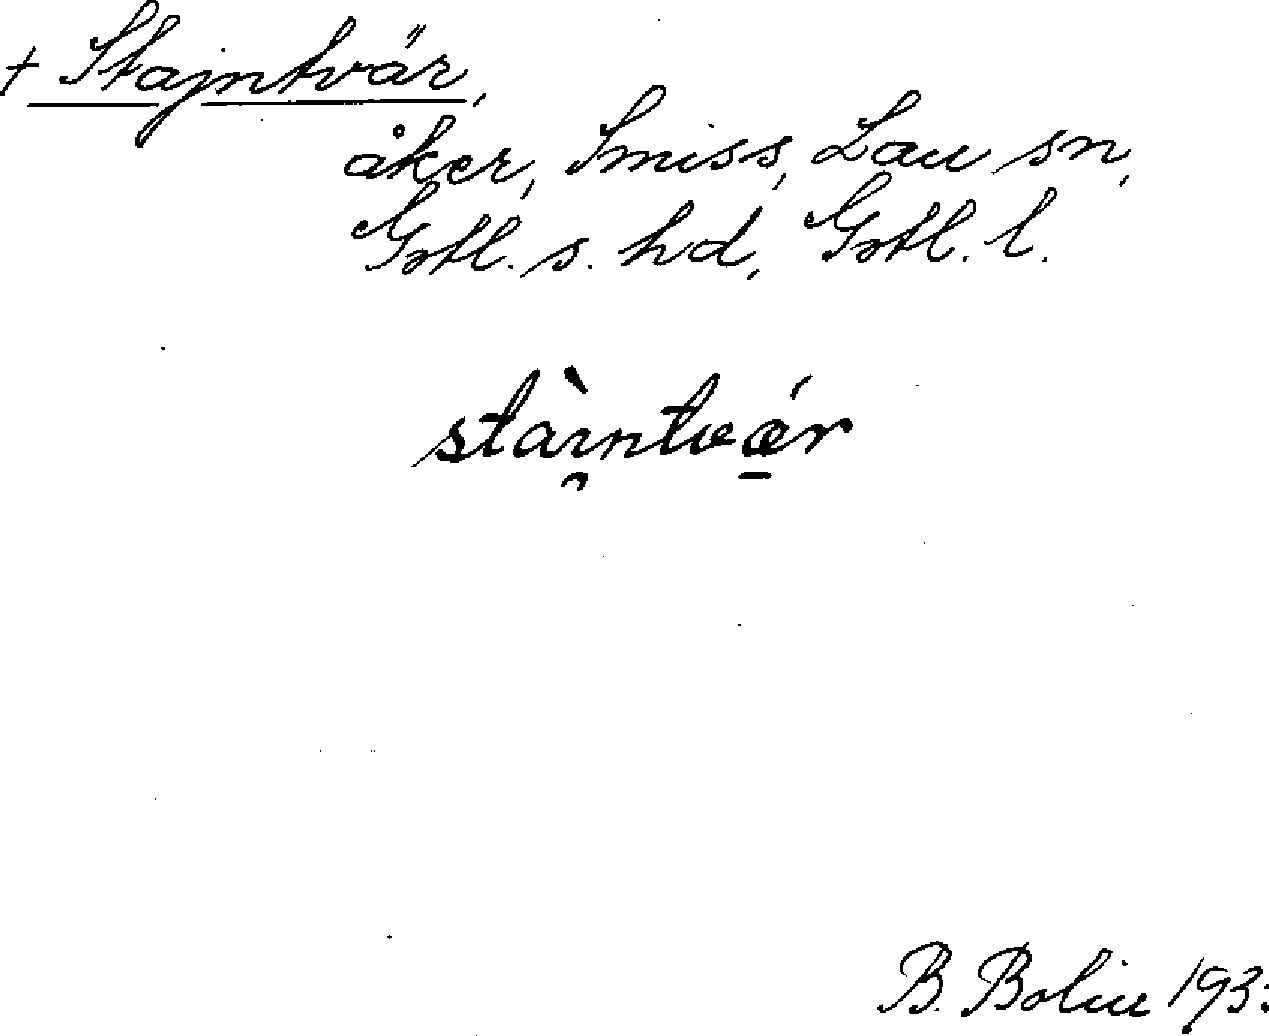 + Stajntvär,
åker, Smiss, Lau sn,
Gotl. s. hd, Gotl. l.
B. Bolin 193